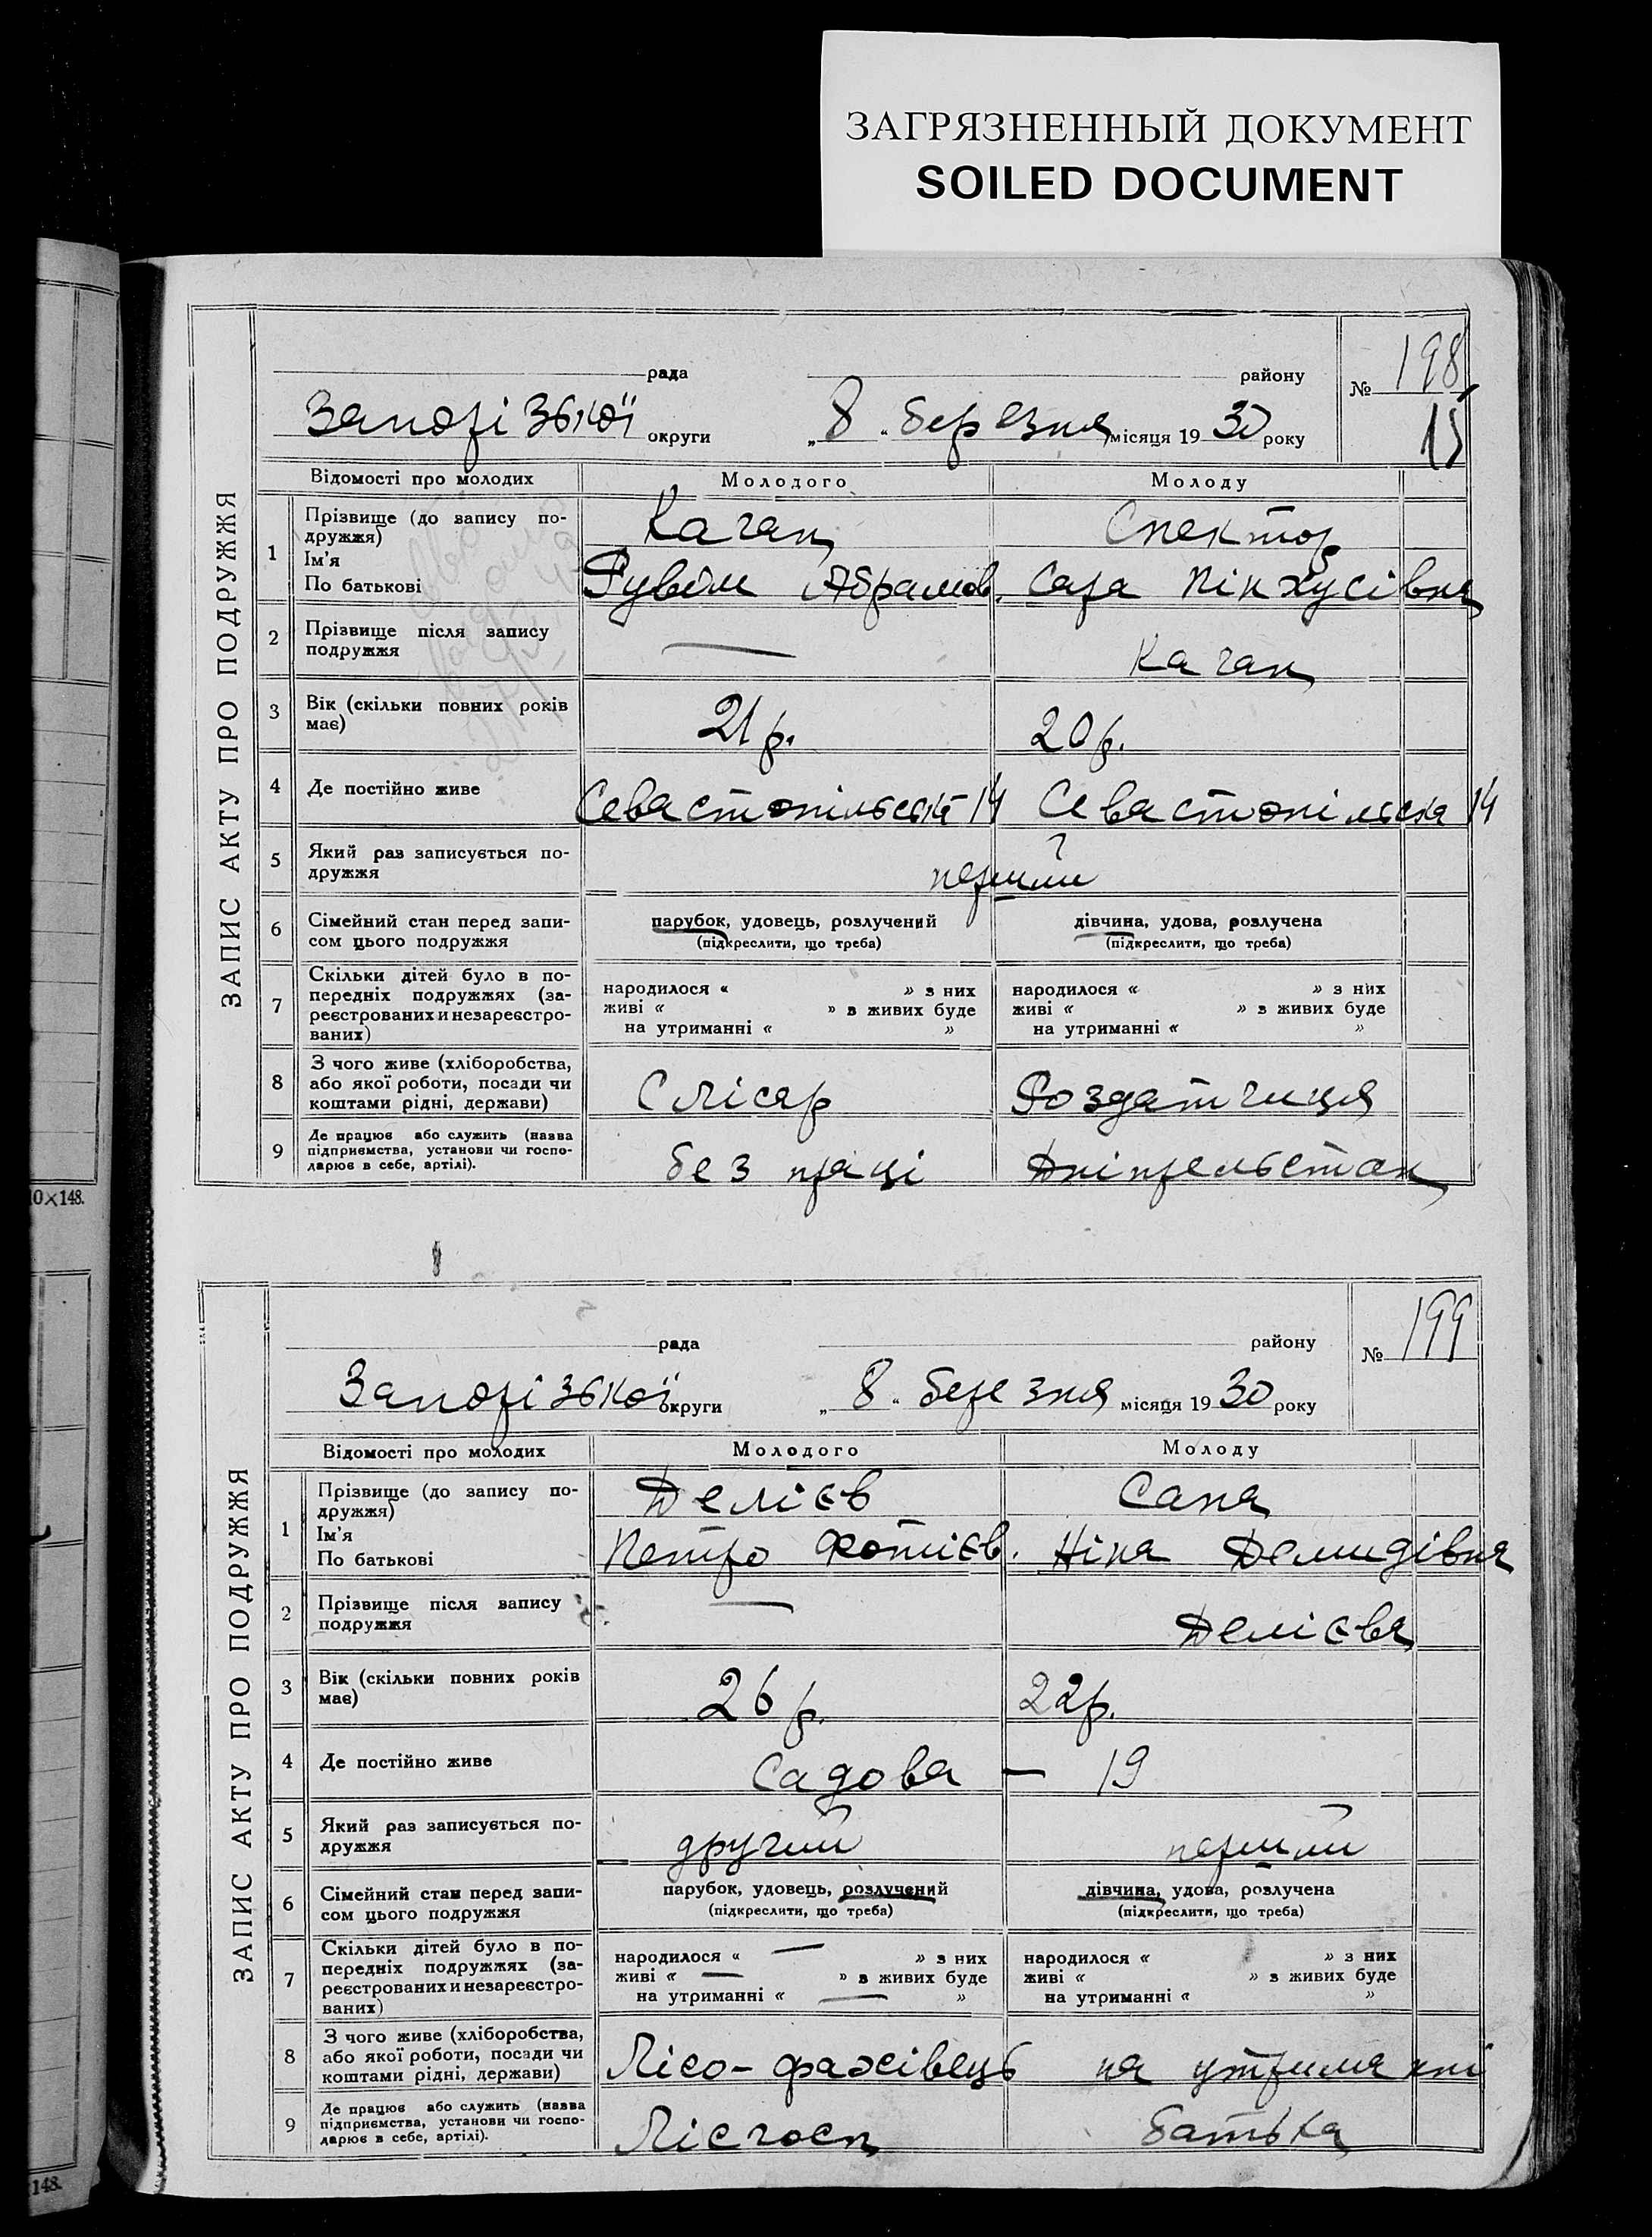 ЗАГРЯЗНЕННЫЙ ДОКУМЕНТ
SOILED DOCUMENT
ЗАПИС АКТУ ПРО ПОДРУЖЖЯ
рада району № 198
Запорізької округи „ 8 “ березня місяця 19 30 року
15
Відомості про молодих Молодого Молоду
1 Прізвище (до запису по-
дружжя) Каган Спектор
Ім'я
По батькові Рувім Абрамов. Сара Пінхусівна
2 Прізвище після запису
подружжя — Каган
3 Вік (скільки повних років
має) 21 р. 20 р.
4 Де постійно живе Севастопільська 14 Севастопільська 14
5 Який раз записується по-
дружжя перший
6 Сімейний стан перед запи- парубок, удовець, розлучений дівчина, удова, розлучена
сом цього подружжя (підкреслити, що треба) (підкреслити, що треба)
7 Скільки дітей було в по-
передніх подружжях (за-
реєстрованих и незареєстро-
ваних)
народилося « » з них народилося « » з них
живі « » з живих буде живі « » з живих буде
на утриманні « » на утриманні « »
8 З чого живе (хліборобства,
або якої роботи, посади чи
коштами рідні, держави) Слісар Роздатчиця
9 Де працює або служить (назва
підприємства, установи чи госпо-
дарює в себе, артілі). без праці Дніпрельстан
0×148.
ЗАПИС АКТУ ПРО ПОДРУЖЖЯ
рада району № 199
Запорізької округи „ 8 “ березня місяця 19 30 року
Відомості про молодих Молодого Молоду
1 Прізвище (до запису по-
дружжя) Делієв Сапа
Ім'я
По батькові Петро Фотієв. Ніна Демидівна
2 Прізвище після запису
подружжя — Делієва
3 Вік (скільки повних років
має) 26 р. 22 р.
4 Де постійно живе Садова — 19
5 Який раз записується по-
дружжя другий перший
6 Сімейний стан перед запи- парубок, удовець, розлучений дівчина, удова, розлучена
сом цього подружжя (підкреслити, що треба) (підкреслити, що треба)
7 Скільки дітей було в по-
передніх подружжях (за-
реєстрованих и незареєстро-
ваних)
народилося « — » з них народилося « » з них
живі « — » з живих буде живі « » з живих буде
на утриманні « — » на утриманні « »
8 З чого живе (хліборобства,
або якої роботи, посади чи
коштами рідні, держави) Лісо-фахівець на утриманні
9 Де працює або служить (назва
підприємства, установи чи госпо-
дарює в себе, артілі). Лісгосп батька
148.